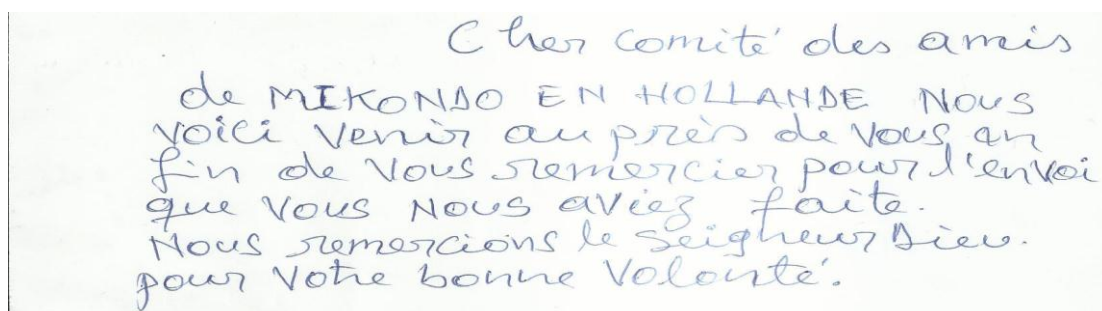 Cher comité des amis
de MIKONDO EN HOLLANDE NOUS
voici venir au près de vous, an
fin de vous remercier pour l'envoi
que vous NOUS aviez faite.
Nous remercions le Seigneur Dieu.
pour votre bonne volonté.